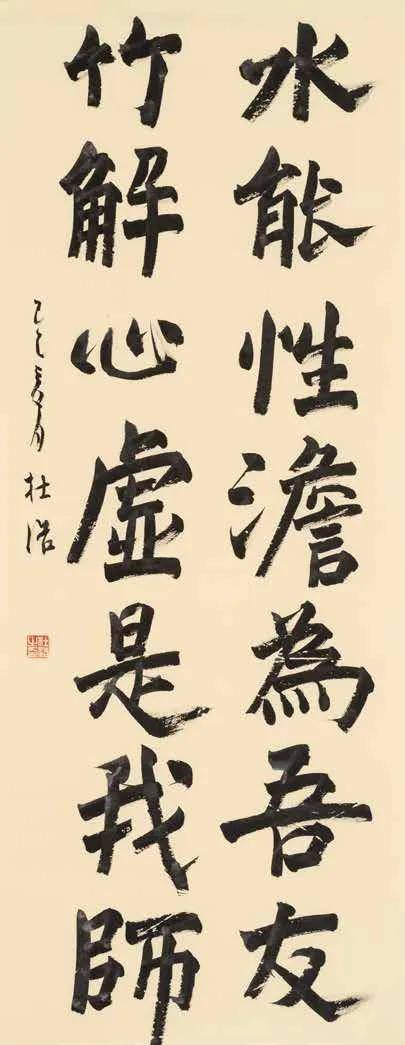 水能性澹為吾友
竹解心虚是我師
乙巳夏月杜浩